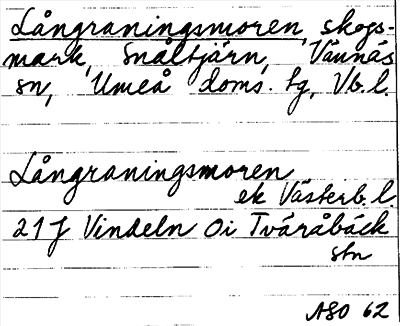 Långraningsmoren, skogs-
mark, Snåltjärn, Vännäs
sn, Umeå doms. tg, Vb. l.
Långraningsmoren
ek Västerb. l.
21 J Vindeln Oi Tväråbäck
stn
ASO 62